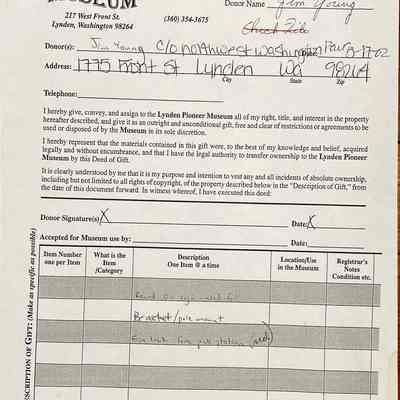 MUSEUM
217 West Front St.
Lynden, Washington 98264
(360) 354-3675
Donor Name Jim Young
Check File
Donor(s): Jim Young c/o northwest washington Fair 5-17-02
Address: 1775 Front St Lynden Wa 98264
City State Zip
Telephone:
I hereby give, convey, and assign to the Lynden Pioneer Museum all of my right, title, and interest in the property
hereafter described, and give it as an outright and unconditional gift, free and clear of restrictions or agreements to be
used or disposed of by the Museum in its sole discretion.
I hereby represent that the materials contained in this gift were, to the best of my knowledge and belief, acquired
legally and without encumbrance, and that I have the legal authority to transfer ownership to the Lynden Pioneer
Museum by this Deed of Gift.
It is clearly understood by me that it is my purpose and intention to vest any and all incidents of absolute ownership,
including but not limited to all rights of copyright, of the property described below in the "Description of Gift," from
the date of this document forward. In witness whereof, I have executed this deed:
Donor Signature(s) X Date: X
Accepted for Museum use by: Date:
DESCRIPTION OF GIFT: (Make as specific as possible)
Item Number one per Item
What is the Item /Category
Description One Item @ a time
Location/Use in the Museum
Registrar's Notes Condition etc.
Bracket/pole mount
(red)